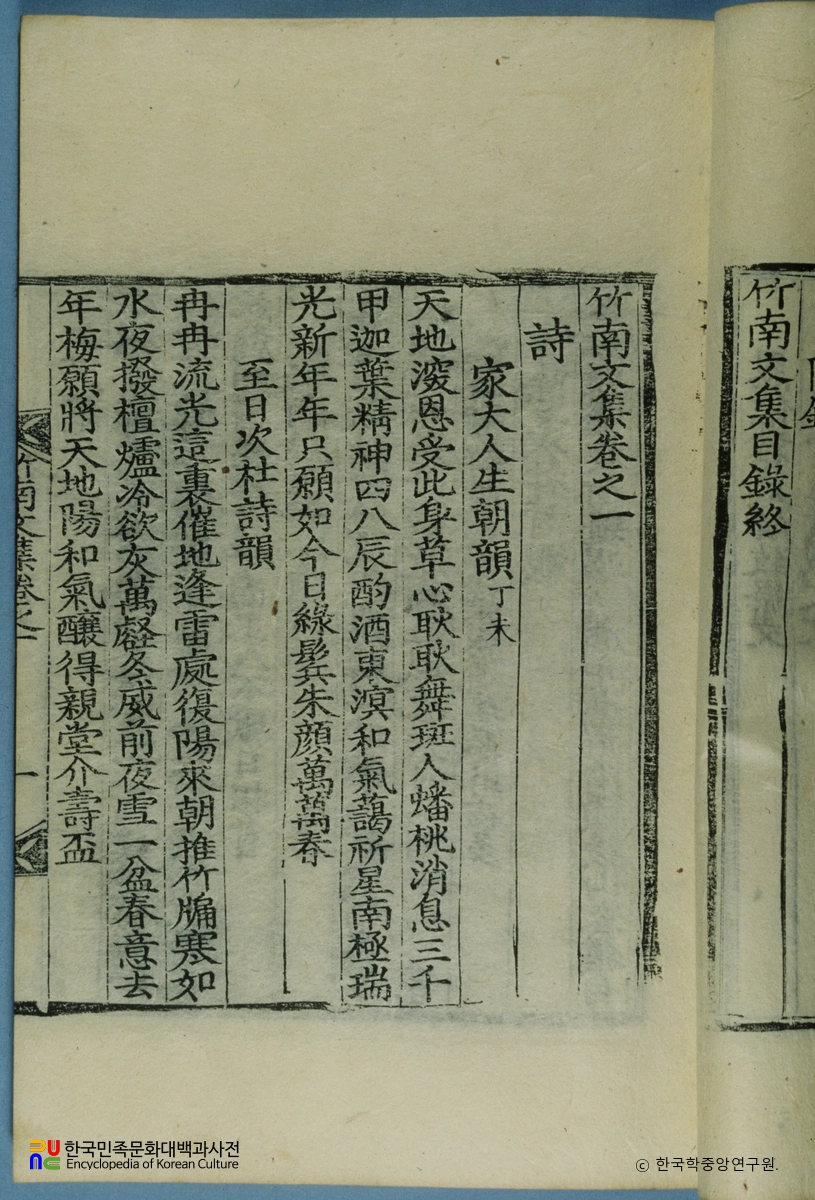 竹南文集目錄終
竹南文集卷之一
詩
家大人生朝韻 丁未
天地深恩受此身草心耿耿舞斑人蟠桃消息三千
甲迦葉精神四八辰酌酒東溟和氣藹祈星南極瑞
光新年年只願如今日綠髩朱顔萬萬春
至日次杜詩韻
冉冉流光這裏催地逢雷處復陽來朝推竹牖寒如
水夜撥檀爐冷欲灰萬壑冬威前夜雪一盆春意去
年梅願將天地陽和氣釀得親堂介壽盃
竹南文集卷之一
一
한국민족문화대백과사전
Encyclopedia of Korean Culture
ⓒ 한국학중앙연구원.